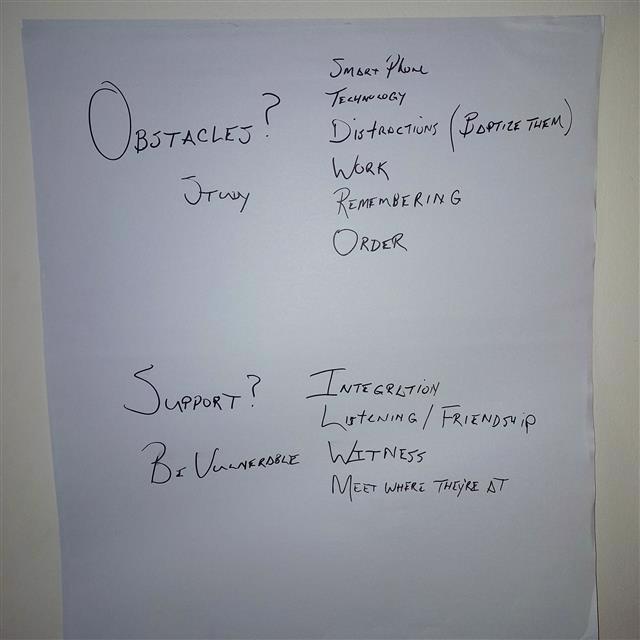 Smart Phone
Technology
Obstacles?
Distractions (Baptize Them)
Work
Study
Remembering
Order
Support?
Integration
Listening / Friendship
Be Vulnerable
Witness
Meet where they're at